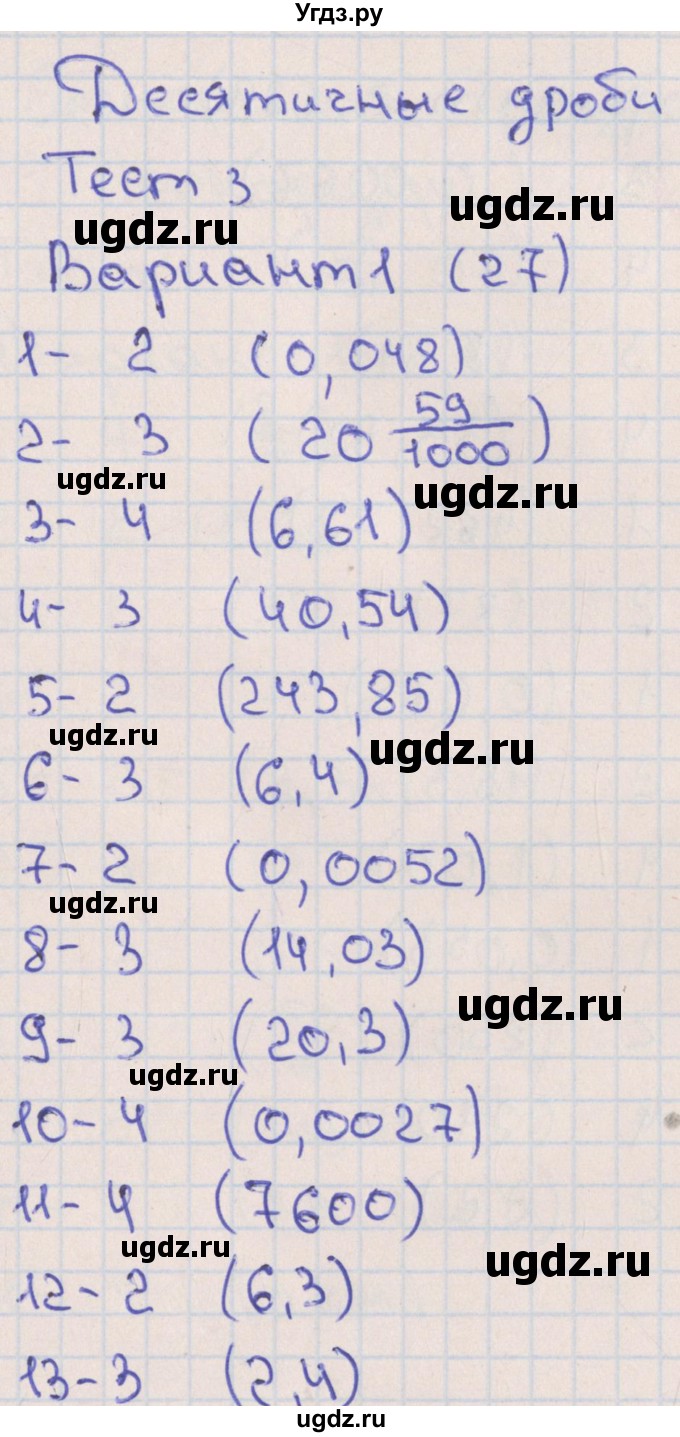 Угдз.ру
Десятичные дроби
Тест 3
ugdz.ru
ugdz.ru
Вариант 1 (27)
1- 2 (0,048)
2- 3 (20 59/1000)
ugdz.ru
ugdz.ru
3- 4 (6,61)
4- 3 (40,54)
5- 2 (243,85)
ugdz.ru
ugdz.ru
6- 3 (6,4)
7- 2 (0,0052)
ugdz.ru
8- 3 (14,03)
ugdz.ru
9- 3 (20,3)
ugdz.ru
10- 4 (0,0027)
11- 4 (7600)
ugdz.ru
ugdz.ru
12- 2 (6,3)
13-3 (2,4)
ugdz.ru